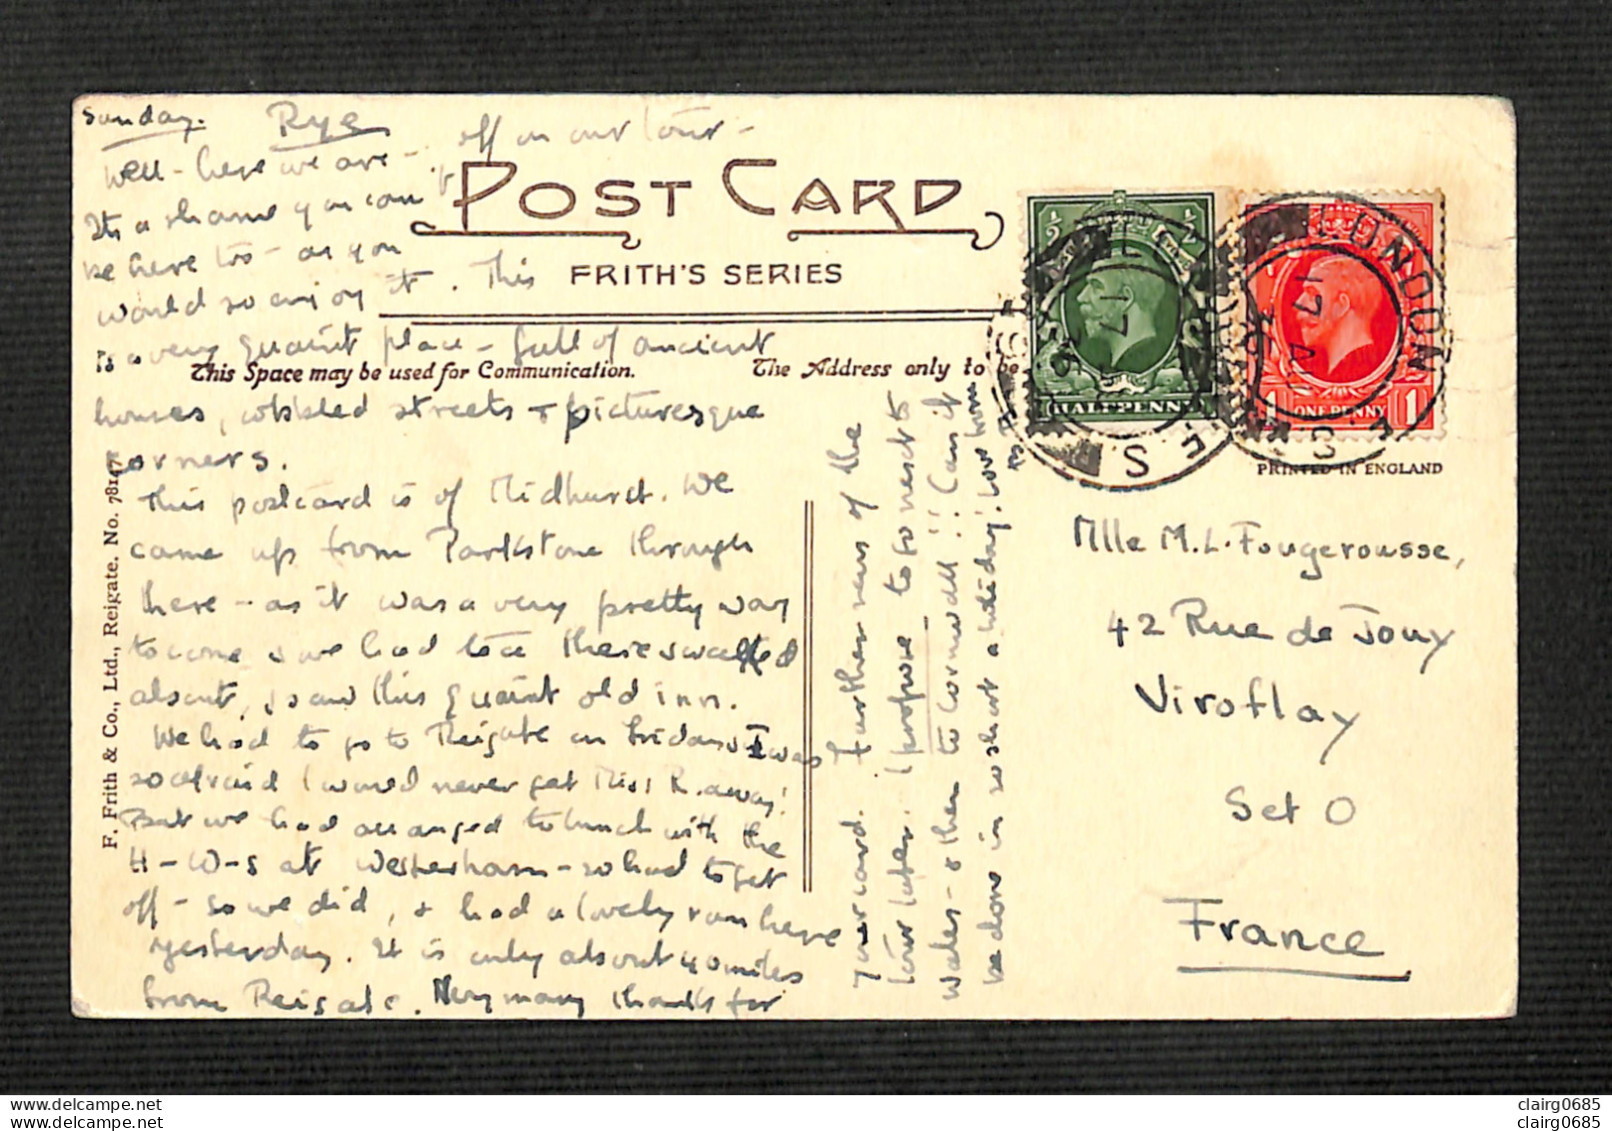 Sunday. Rye
Well - here we are - off on our tour -
It's a shame you can't
be here too - as you
would so enjoy it. This
is a very quaint place - full of ancient
houses, cobbled streets & picturesque
corners.
This postcard is of Midhurst. We
came up from Parkstone through
here - as it was a very pretty way
to come & we had tea there & walked
about, & saw this quaint old inn.
We had to go to Reigate on Friday & I was
so afraid I would never get Miss R. away!
But we had arranged to lunch with the
H-W-S at Westerham - so had to get
off - so we did, & had a lovely run here
yesterday. It is only about 40 miles
from Reigate. Very many thanks for
your card. Further news of the
tour later. I propose to go next to
Wales - & then to Cornwall!! Can it
be done in so short a holiday! Love from
POST CARD
FRITH'S SERIES
This Space may be used for Communication.
The Address only to be
F. Frith & Co., Ltd., Reigate. No. 78147
HALFPENNY
1 ONE PENNY 1
LONDON
17 AP
F.S
PRINTED IN ENGLAND
Mlle M. L. Fougerousse,
42 Rue de Jouy
Viroflay
Set O
France
clairg0685
clairg0685